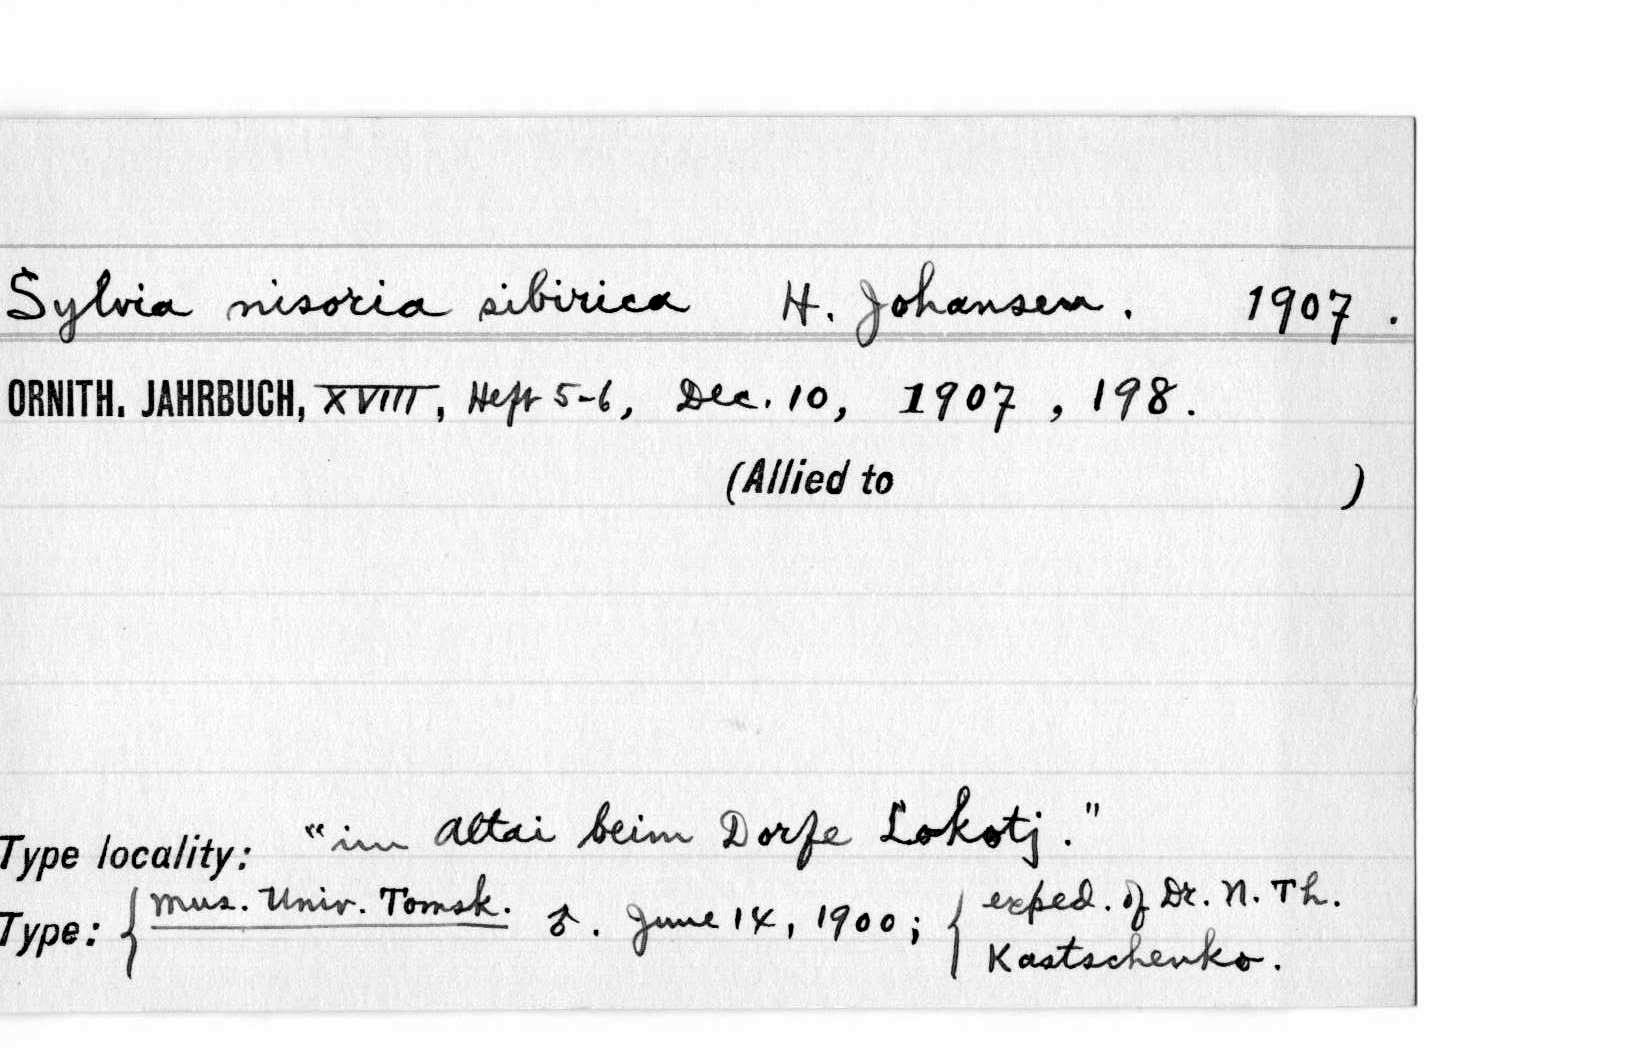 Sylvia nisoria sibirica H. Johansen. 1907.
ORNITH. JAHRBUCH, XVIII, Heft 5-6, Dec. 10, 1907, 198.
(Allied to )
Type locality: "im Altai beim Dorfe Lokotj."
Type: { Mus. Univ. Tomsk. ♂. June 14, 1900; { exped. of Dr. N. Th.
Kastschenko.